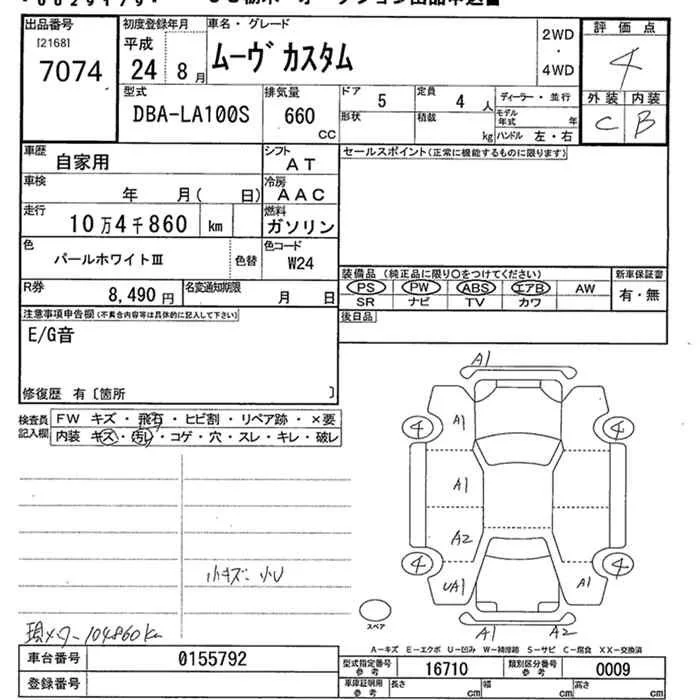 出品番号
[2168]
7074
初度登録年月
平成
24 8月
車名・グレード
ムーヴ カスタム
2WD
・
4WD
評価点
4
外装 内装
C B
型式
DBA-LA100S
排気量
660 cc
ドア 5
定員 4 人
ディーラー・並行
形状
積載 kg
モデル年式 年
ハンドル 左・右
車歴
自家用
シフト
AT
セールスポイント(正常に機能するものに限ります)
車検
年 月( 日)
冷房
AAC
走行
10万4千860 km
燃料
ガソリン
色
パールホワイトIII
色替
色コード
W24
R券
8,490円
名変通知期限
月 日
装備品(純正品に限り○をつけてください)
新車保証書
PS PW ABS エアB AW
有・無
SR ナビ TV カワ
後日品
注意事項申告欄(不具合内容等は具体的に記入して下さい)
E/G音
修復歴 有〔箇所 〕
検査員記入欄
FW キズ・飛石・ヒビ割・リペア跡・×要
内装 キズ・汚レ・コゲ・穴・スレ・キレ・破レ
小キズ・小U
現メーター 104860km
A1
4 A1 4
A1
A2
4 4
UA1 A1
A1 A2
スペア
A-キズ E-エクボ U-凹み W-補修跡 S-サビ C-腐食 XX-交換済
車台番号 0155792
型式指定番号参考 16710
類別区分番号参考 0009
登録番号
車庫証明用参考 長さ cm 幅 cm 高さ cm